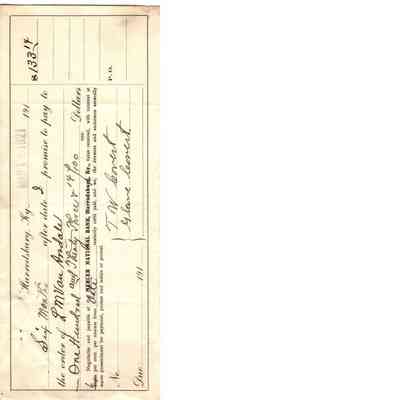 $133 14
Harrodsburg, Ky. MAR 1921 191
Six Months after date I promise to pay to
the order of P M Van Arsdale
One Hundred and Thirty Three & 14/100 Dollars
Negotiable and payable at the MERCER NATIONAL BANK, Harrodsburg, Ky., value received, with interest at
6 per cent. per annum from date until paid, and we, the drawers and endorsers severally
waive presentment for payment, protest and notice of protest.
No. T. W Covert
Due 191 P. O.